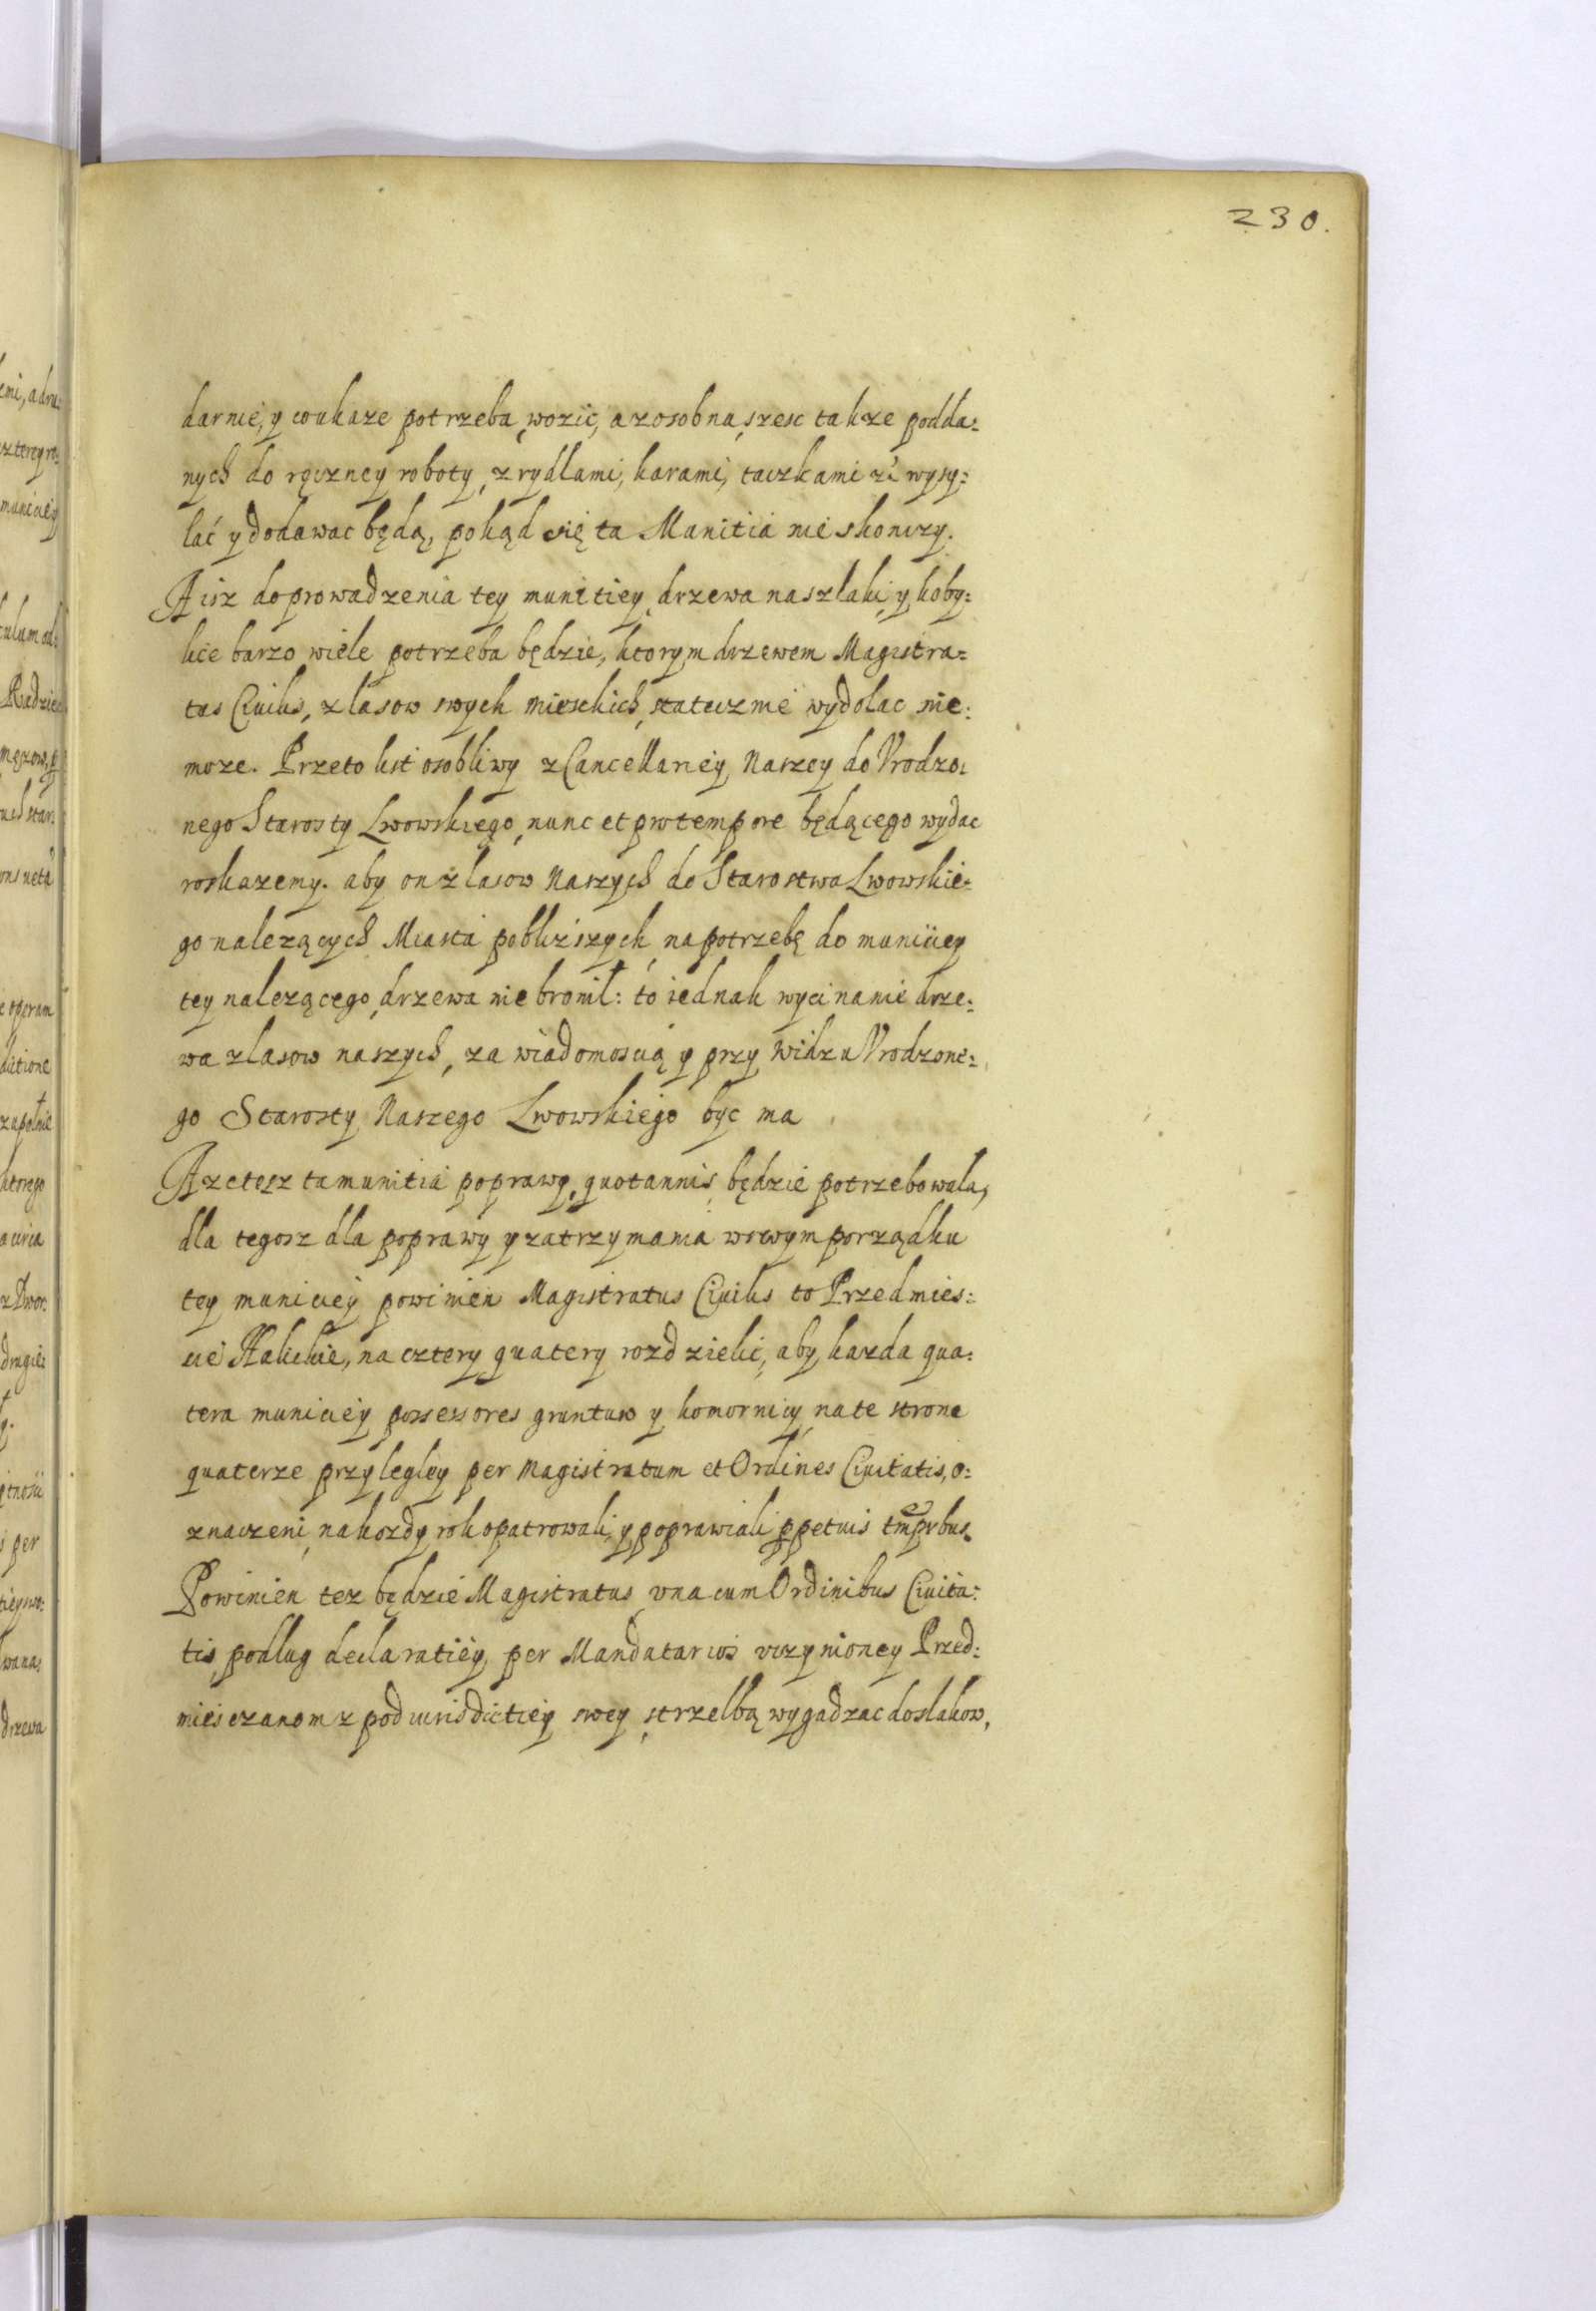 230.
darnie, y co ukaze potrzeba, wozic, a z osobna, szesc takze podda:
nych do ręczney roboty, z rydlami, karami, taczkami wysy:
lać y dodawac będą, pokąd się ta Manitia nie skonczy.
A isz do prowadzenia tey munitiey drzewa na szlaki y koby:
lice barzo wiele potrzeba będzie, ktorym drzewem Magistra:
tus Ciuilis, z lasow swych mieskich, statecznie wydolac nie:
moze. Przeto list osobliwy z Cancellariey Naszey do Vrodzo:
nego Starosty Lwowskiego, nunc et pro tempore będącego wydac
roskazemy. aby on z lasow Naszych do Starostwa Lwowskie:
go nalezących Miasta poblizszych, na potrzebę do municiey
tey nalezącego, drzewa nie bronil: to iednak wycinanie drze:
wa z lasow naszych, za wiadomoscią y przy widzu Vrodzone:
go Starosty Naszego Lwowskiego byc ma
A ze tesz ta munitia poprawy, quotannis będzie potrzebowala,
dla tegosz dla poprawy y zatrzymania w swym porządku
tey municiey powinien Magistratus Ciuilis to Przedmies:
cie Halickie, na cztery quatery rozdzielic, aby kazda qua:
tera municiey possessores gruntuw y komornicy na te strone
quaterze przylegley per Magistratum et Ordines Ciuitatis, o:
znaczeni, na kozdy rok opatrowali, y poprawiali ppetuis tmprbus.
Powinien tez będzie Magistratus vna cum Ordinibus Ciuita:
tis, podlug declaratiey per Mandatarios vczynioney Przed:
miesczanom z pod iurisdictiey swey strzelbą wygadzac do slakow,